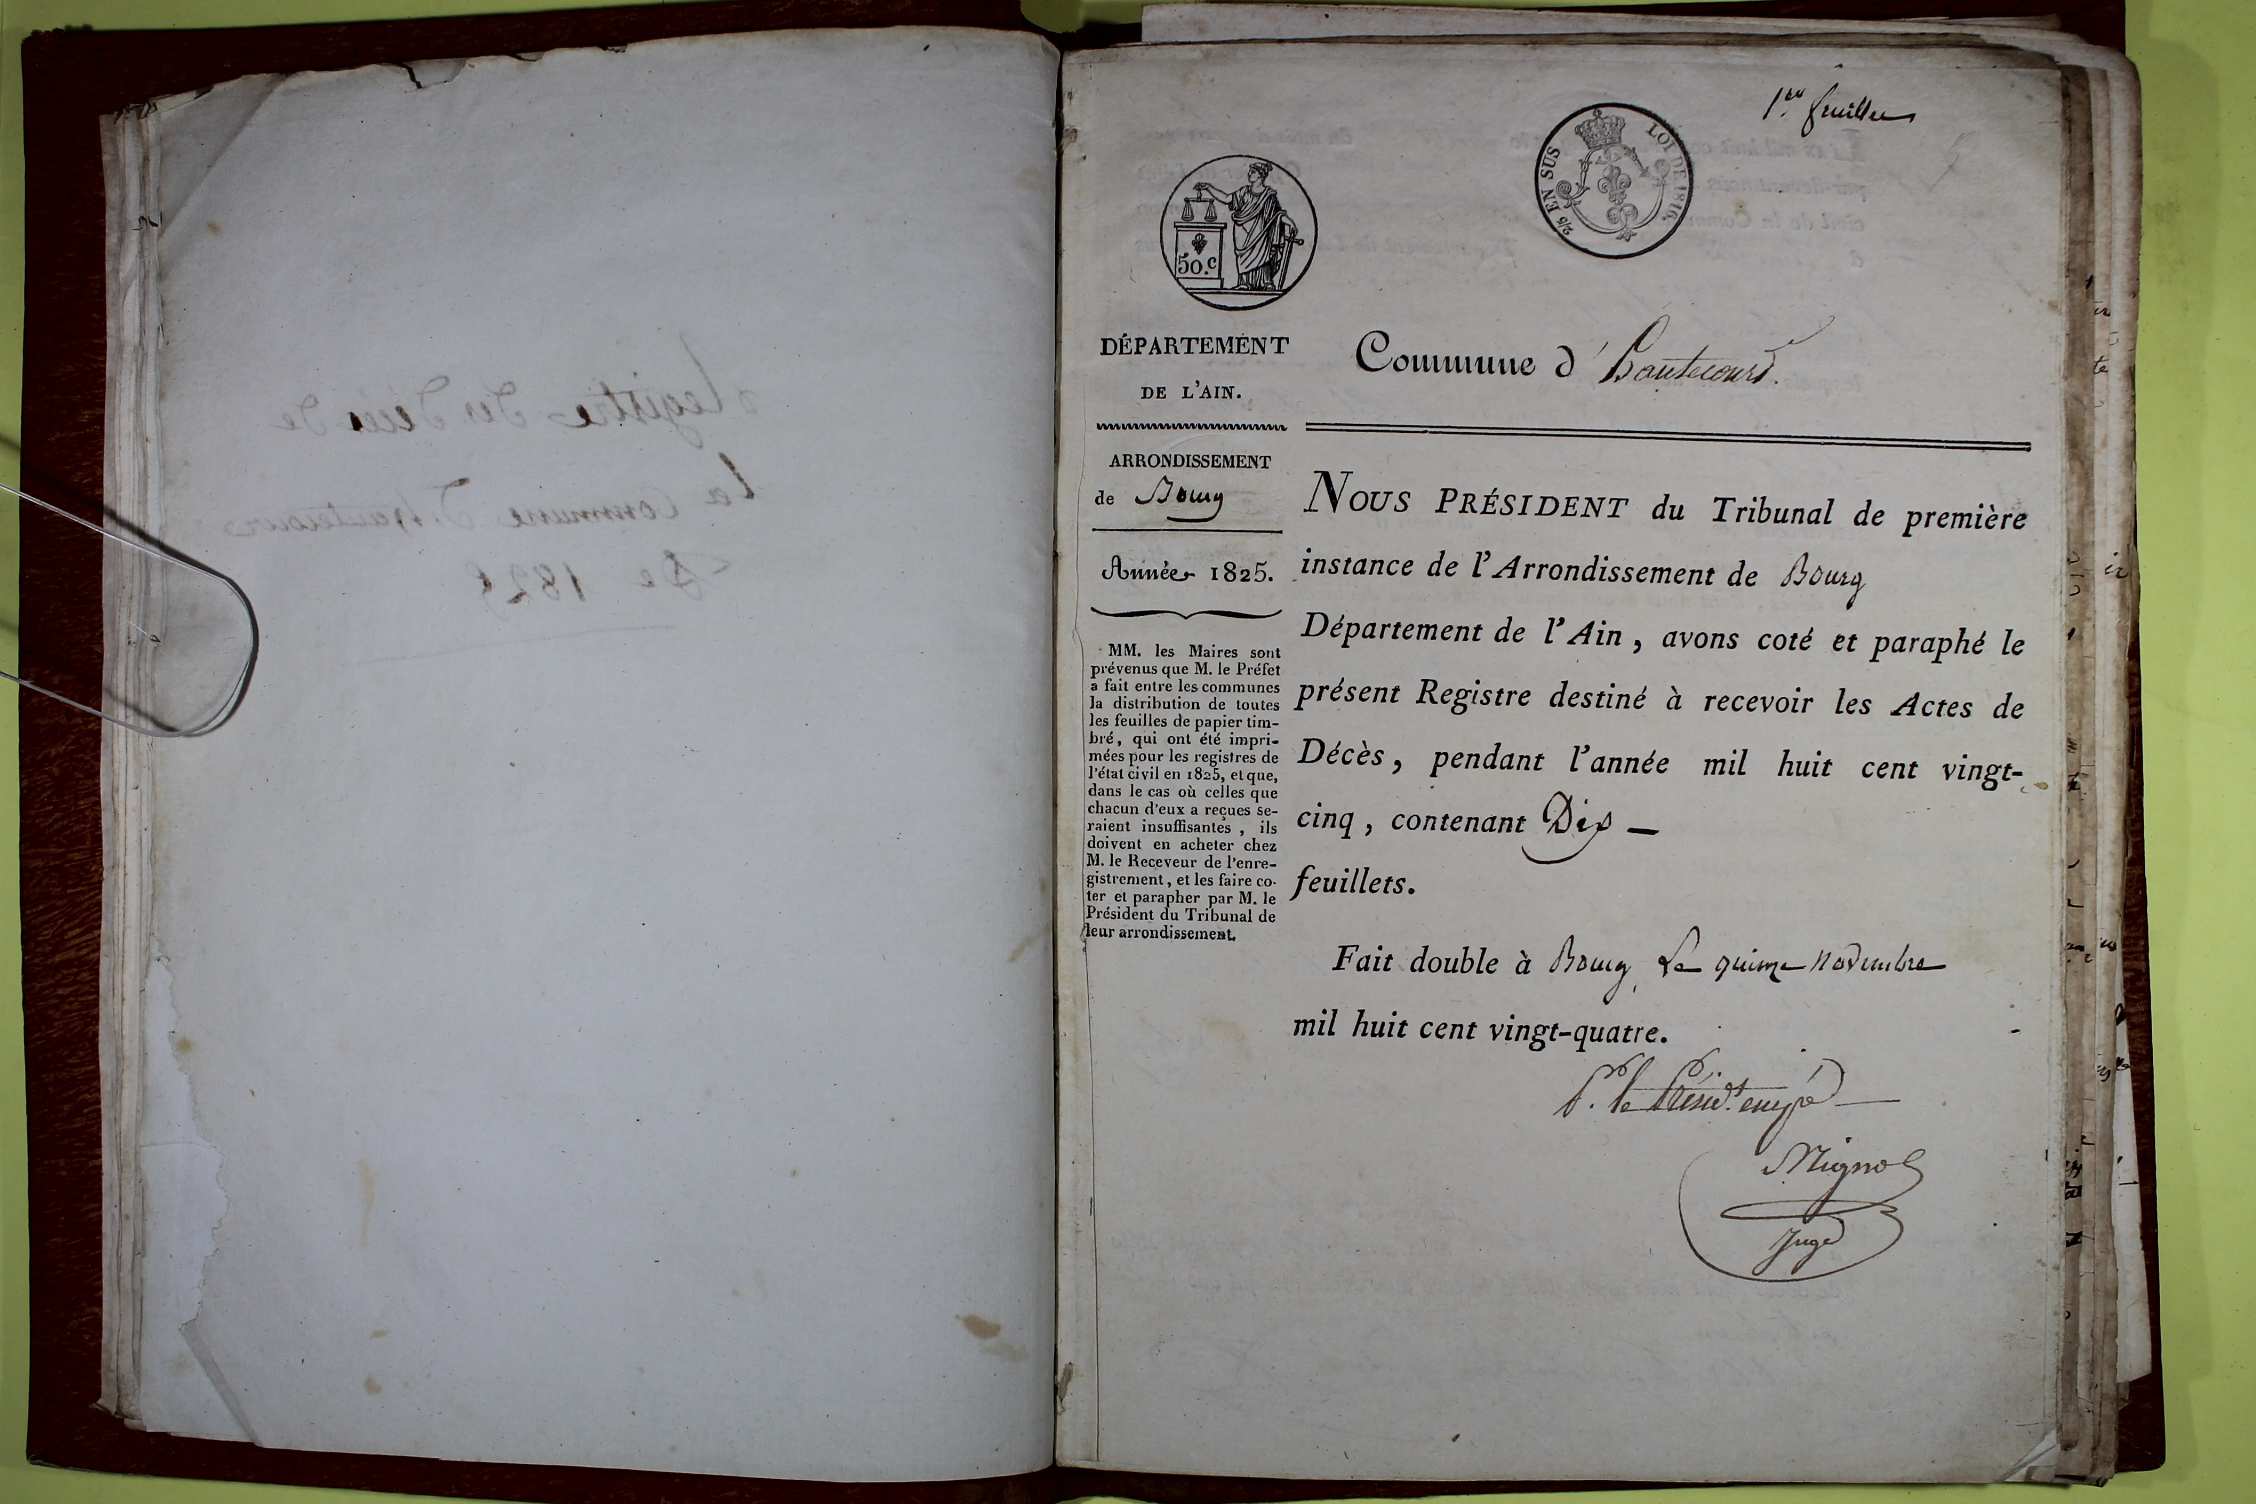 Registre des décès de
La Commune d'hautecour
De 1825
1er feuillet
2/5 EN SUS
LOI DE 1816.
50.c
DÉPARTEMENT
DE L'AIN.
Commune d'hautecour
ARRONDISSEMENT
de Bourg
Année 1825.
MM. les Maires sont
prévenus que M. le Préfet
a fait entre les communes
la distribution de toutes
les feuilles de papier tim-
bré, qui ont été impri-
mées pour les registres de
l'état civil en 1825, et que,
dans le cas où celles que
chacun d'eux a reçues se-
raient insuffisantes, ils
doivent en acheter chez
M. le Receveur de l'enre-
gistrement, et les faire co-
ter et parapher par M. le
Président du Tribunal de
leur arrondissement.
NOUS PRÉSIDENT du Tribunal de première
instance de l'Arrondissement de Bourg
Département de l'Ain, avons coté et paraphé le
présent Registre destiné à recevoir les Actes de
Décès, pendant l'année mil huit cent vingt-
cinq, contenant Dix —
feuillets.
Fait double à Bourg, Le quinze novembre
mil huit cent vingt-quatre.
Pr. le Présidt. empé
Mignot
Juge